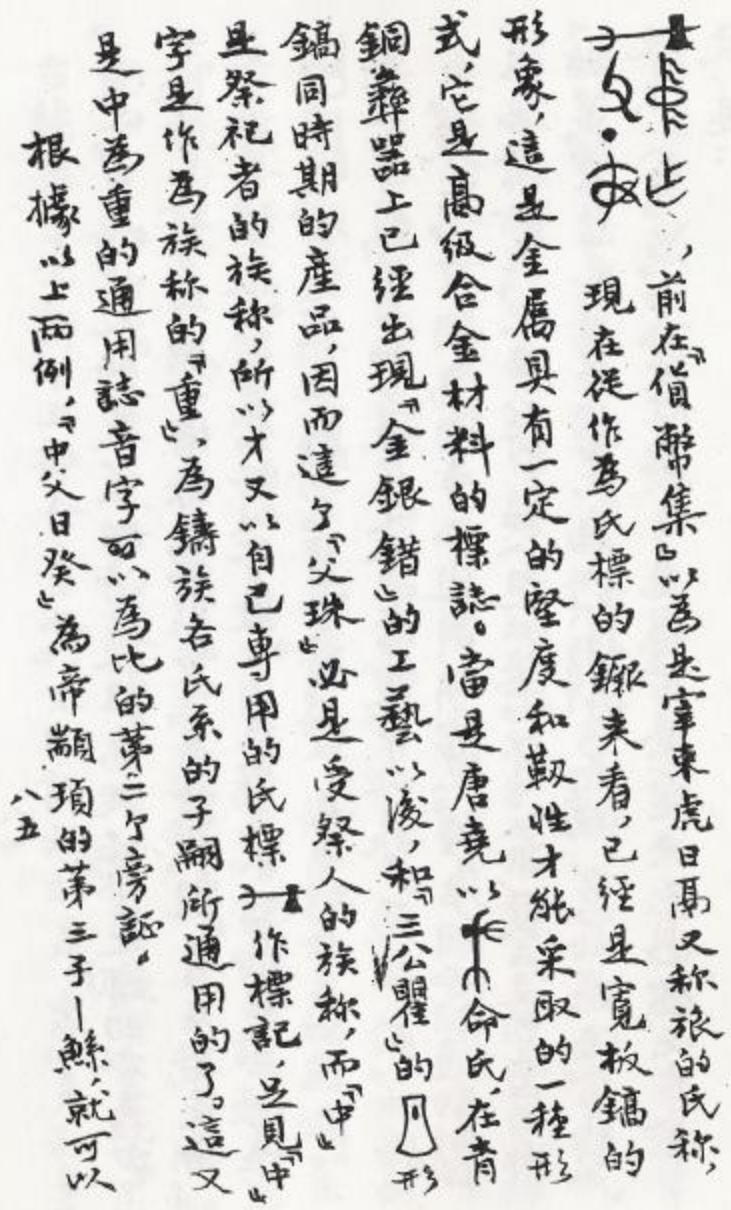 ，前在『貨幣集』以為是宰東虎日禹又称旅的氏称，
現在從作為氏標的鐝来看，已經是寬板鎬的
形象，這是金屬具有一定的堅度和靱性才能采取的一種形
式，它是高級合金材料的標誌。當是唐堯以 命氏，在青
銅彝器上已經出現『金銀錯』的工藝以後，和『三公瞿』的 形
鎬同時期的產品，因而這个『父珠』必是受祭人的族称，而『中』
是祭祀者的族称，所以才又以自己專用的氏標 作標記，足見『中』
字是作為族称的『重』、為鑄族各氏系的子嗣所通用的了。這又
是中為重的通用誌音字可以為比的第二个旁証。
根據以上两例，『中父日癸』為帝顓頊的第三子—鯀，就可以
八五